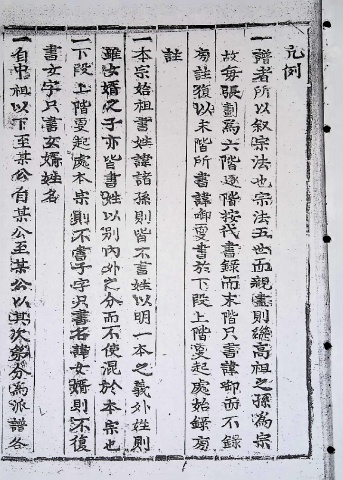 凡例
一譜者所以叙宗法也宗法五世而親盡則継高祖之孫為宗
故每張劃為六階逐階按代書録而末階只書諱啣而不録
旁註復以末階所書諱啣更書於下段上階更起處始録旁
註
一本宗始祖書姓諱諸孫則皆不言姓以明一本之義外姓則
雖女婿之子亦皆書姓以別內外之分而不使混於本宗也
一下段上階更起處本宗則不書子字只書名諱女婿則不復
書女字只書女婿姓名
一自中祖以下至某公自某公至某公以其次第分為派譜各